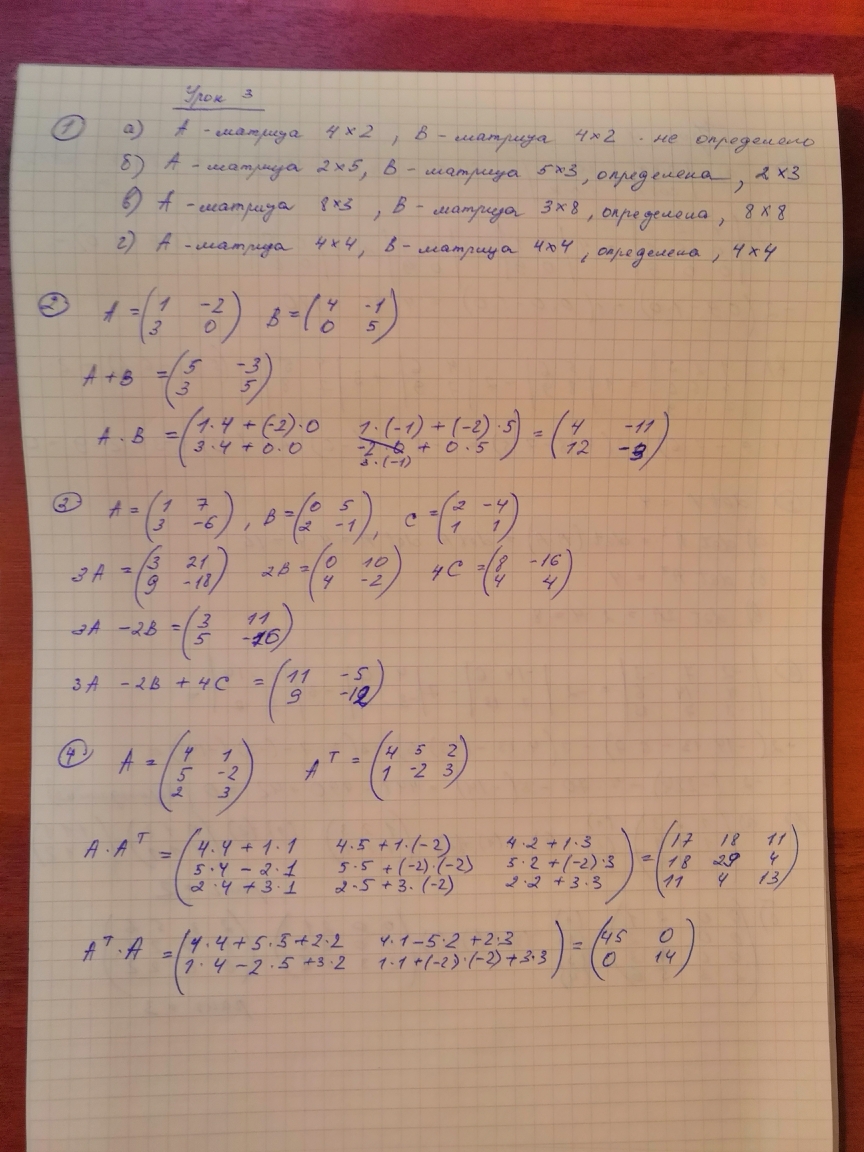 Урок 3
1 а) A - матрица 4×2 , B - матрица 4×2 - не определено
б) A - матрица 2×5, B - матрица 5×3, определена , 2×3
в) A - матрица 8×3 , B - матрица 3×8, определена, 8×8
г) A - матрица 4×4, B - матрица 4×4, определена, 4×4
2 A = (1 -2) B = (4 -1)
(3 0) (0 5)
A + B = (5 -3)
(3 5)
A · B = (1·4 + (-2)·0 1·(-1) + (-2)·5) = (4 -11)
(3·4 + 0·0 -2·0 + 0·5) (12 -3)
3·(-1)
3 A = (1 7) , B = (0 5) , C = (2 -4)
(3 -6) (2 -1) (1 1)
3A = (3 21) 2B = (0 10) 4C = (8 -16)
(9 -18) (4 -2) (4 4)
3A - 2B = (3 11)
(5 -16)
3A - 2B + 4C = (11 -5)
(9 -12)
4 A = (4 1) Aᵀ = (4 5 2)
(5 -2) (1 -2 3)
(2 3)
A · Aᵀ = (4·4 + 1·1 4·5 + 1·(-2) 4·2 + 1·3) = (17 18 11)
(5·4 - 2·1 5·5 + (-2)·(-2) 5·2 + (-2)·3) (18 29 4)
(2·4 + 3·1 2·5 + 3·(-2) 2·2 + 3·3) (11 4 13)
Aᵀ · A = (4·4 + 5·5 + 2·2 4·1 - 5·2 + 2·3) = (45 0)
(1·4 - 2·5 + 3·2 1·1 + (-2)·(-2) + 3·3) (0 14)